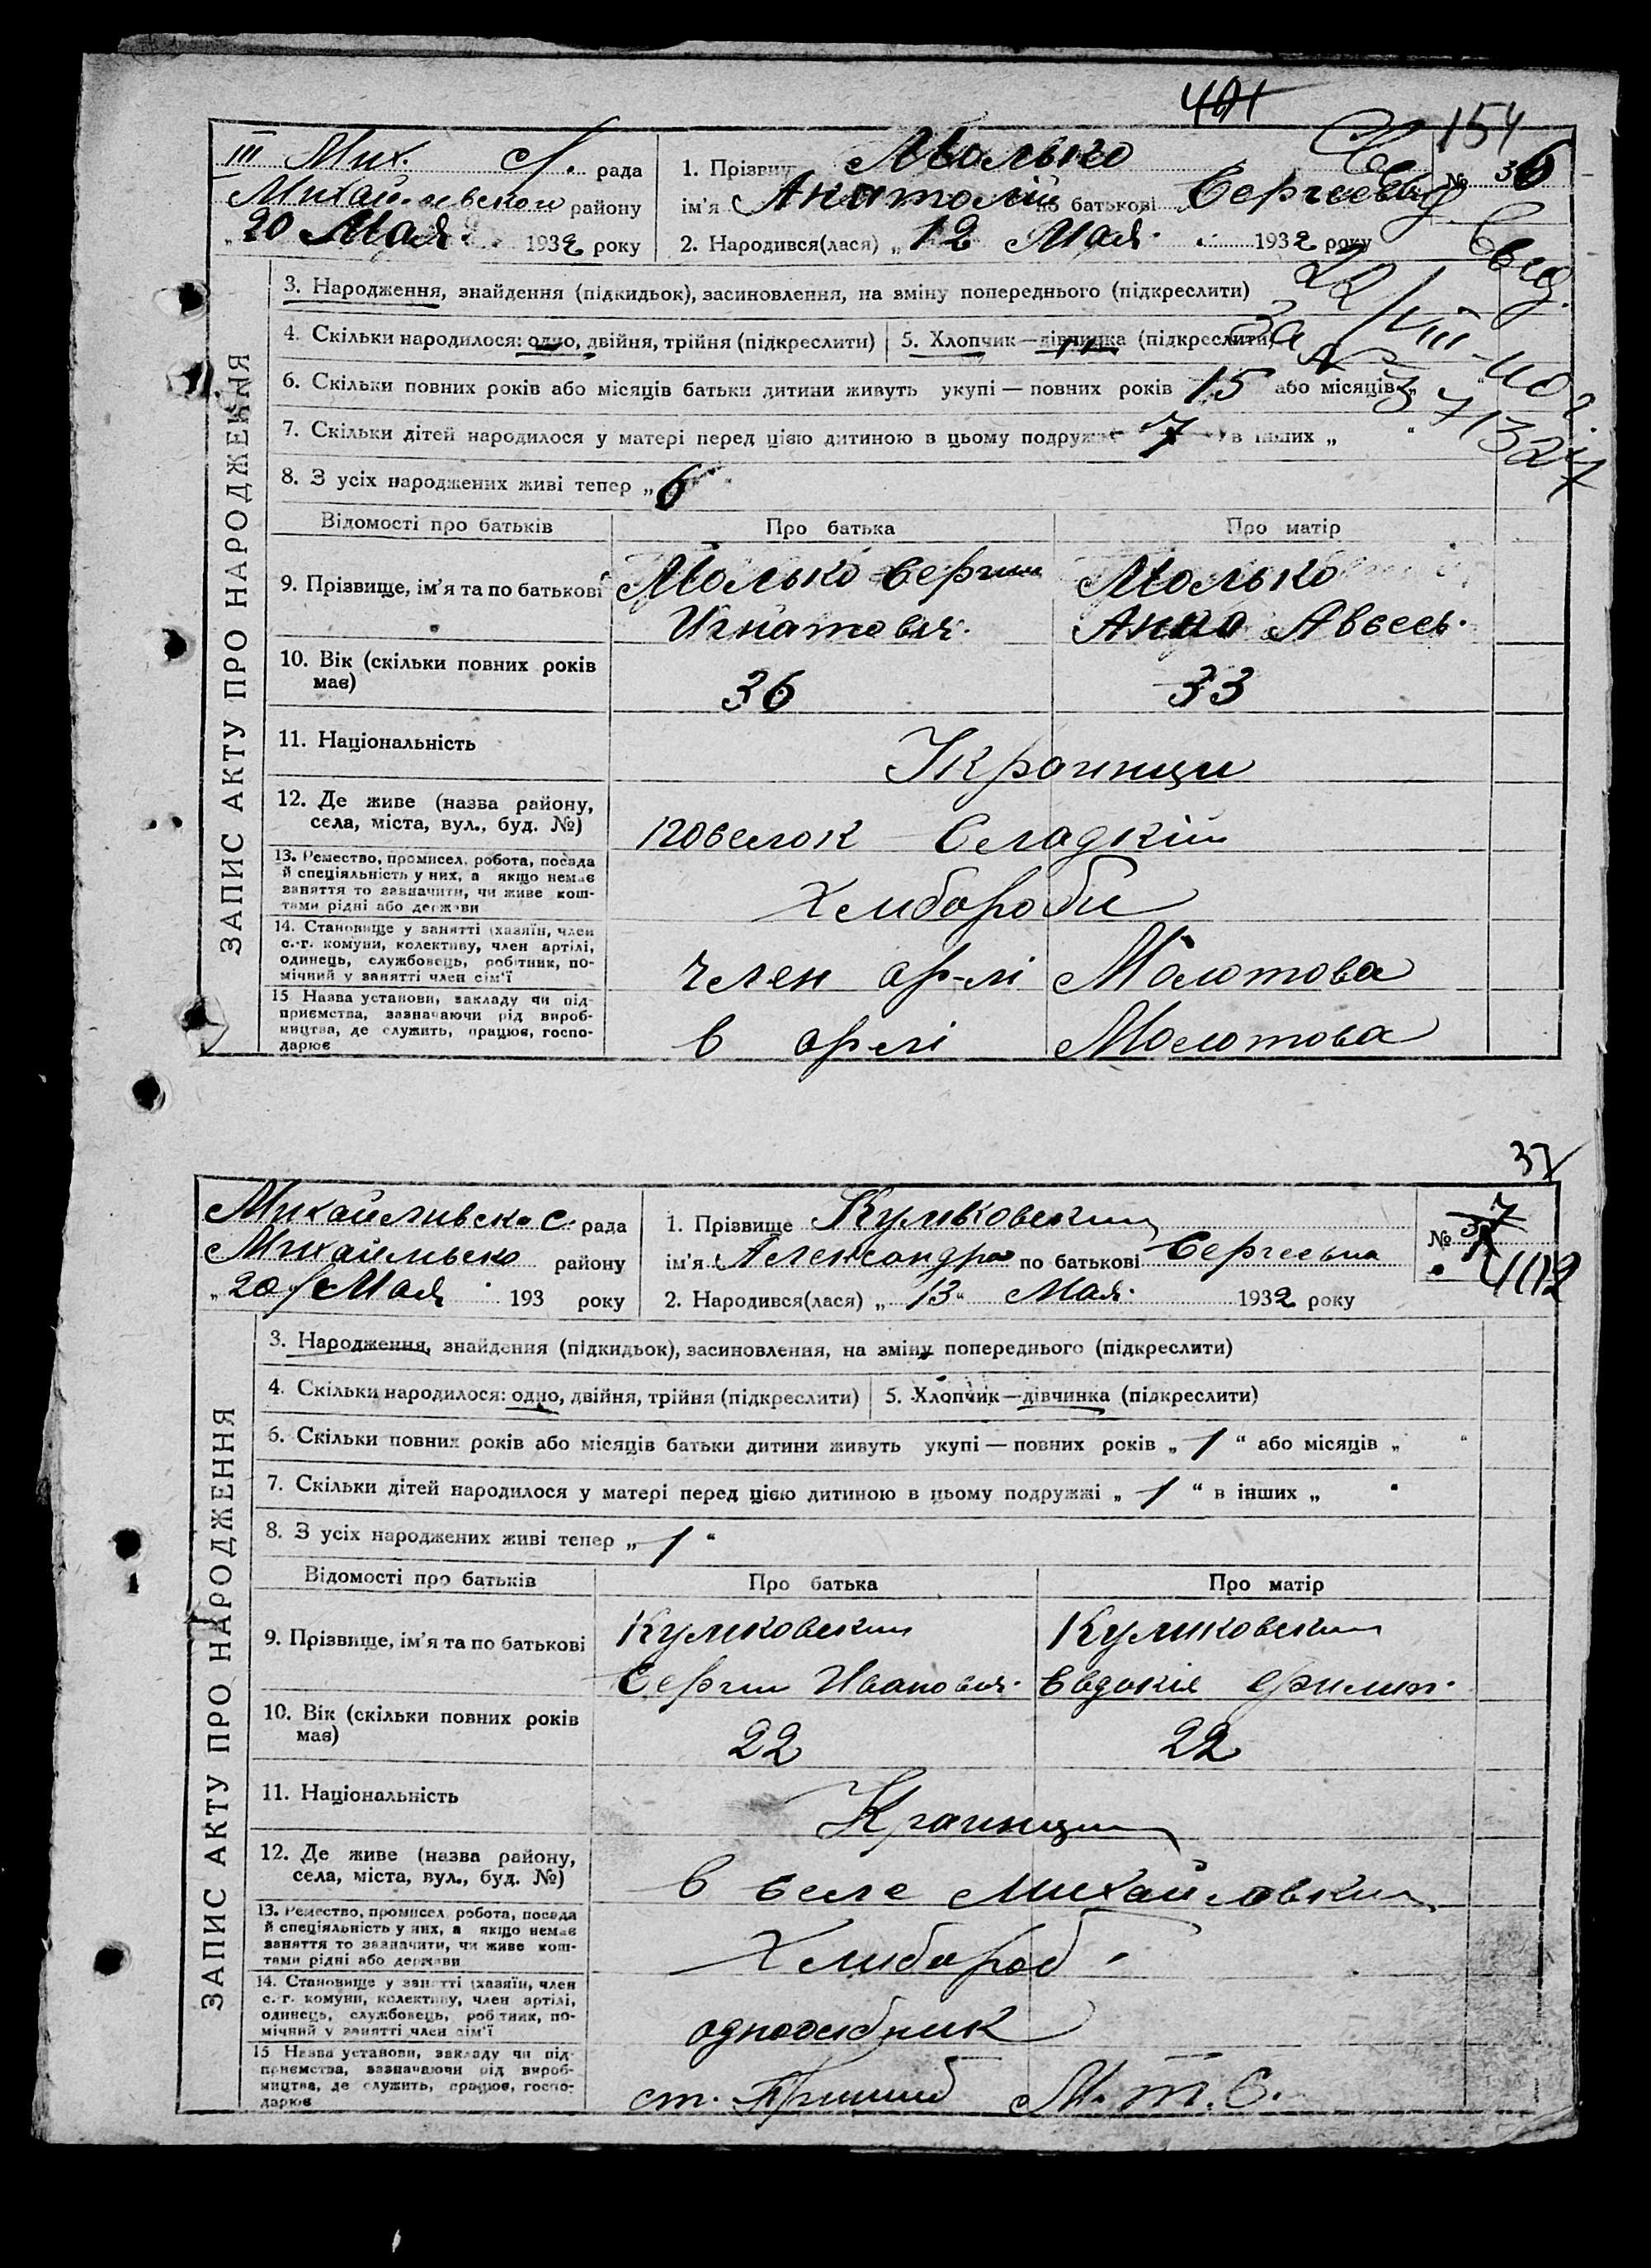 401
154
III Мих. с. рада
Михайлівской району
„20 Мая 1932 року
1. Прізвище Молько
ім'я Анатолій по батькові Сергеев
№ 36
2. Народився(лася) „ 12 Мая 1932 року
Свид.
22/VIII-40 г.
За №
71324
ЗАПИС АКТУ ПРО НАРОДЖЕННЯ
3. Народження, знайдення (підкидьок), засиновлення, на зміну попереднього (підкреслити)
4. Скільки народилося: одно, двійня, трійня (підкреслити)
5. Хлопчик—дівчинка (підкреслити)
6. Скільки повних років або місяців батьки дитини живуть укупі — повних років 15 або місяців „ “
7. Скільки дітей народилося у матері перед цією дитиною в цьому подружжі 7 в інших „ “
8. З усіх народжених живі тепер „ 6
Відомості про батьків
Про батька
Про матір
9. Прізвище, ім'я та по батькові
Молько Сергии
Игнатович.
Молько
Анна Авсеев.
10. Вік (скільки повних років має)
36
33
11. Національність
Украинци
12. Де живе (назва району,
села, міста, вул., буд. №)
поселок Сладкій
13. Ремество, промисел, робота, посада
й спеціяльність у них, а якщо немає
заняття то зазначити, чи живе кош-
тами рідні або держави
Хлибороби
14. Становище у занятті (хазяїн, член
с.-г. комуни, колективу, член артілі,
одинець, службовець, робітник, по-
мічний у занятті член сім'ї
член ар-лі Молотова
15 Назва установи, закладу чи під-
приємства, зазначаючи рід вироб-
ництва, де служить, працює, госпо-
дарює
в ар-лі Молотова
37
Михайливск. с. рада
Михайливско району
„20 Мая 193 року
1. Прізвище Куликовский
ім'я Александра по батькові Сергеевна
№ 37
402
2. Народився(лася) „ 13 “ Мая 1932 року
ЗАПИС АКТУ ПРО НАРОДЖЕННЯ
3. Народження, знайдення (підкидьок), засиновлення, на зміну попереднього (підкреслити)
4. Скільки народилося: одно, двійня, трійня (підкреслити)
5. Хлопчик—дівчинка (підкреслити)
6. Скільки повних років або місяців батьки дитини живуть укупі — повних років „ 1 “ або місяців „ “
7. Скільки дітей народилося у матері перед цією дитиною в цьому подружжі „ 1 “ в інших „ “
8. З усіх народжених живі тепер „ 1 “
Відомості про батьків
Про батька
Про матір
9. Прізвище, ім'я та по батькові
Куликовский
Сергии Иванович.
Куликовский
Евдокія Филип.
10. Вік (скільки повних років має)
22
22
11. Національність
Краинци
12. Де живе (назва району,
села, міста, вул., буд. №)
в селе Михайловки
13. Ремество, промисел, робота, посада
й спеціяльність у них, а якщо немає
заняття то зазначити, чи живе кош-
тами рідні або держави
Хлибороб
14. Становище у занятті (хазяїн, член
с.-г. комуни, колективу, член артілі,
одинець, службовець, робітник, по-
мічний у занятті член сім'ї
одноосибник
15 Назва установи, закладу чи під-
приємства, зазначаючи рід вироб-
ництва, де служить, працює, госпо-
дарює
ст. Пришиб М.т.С.